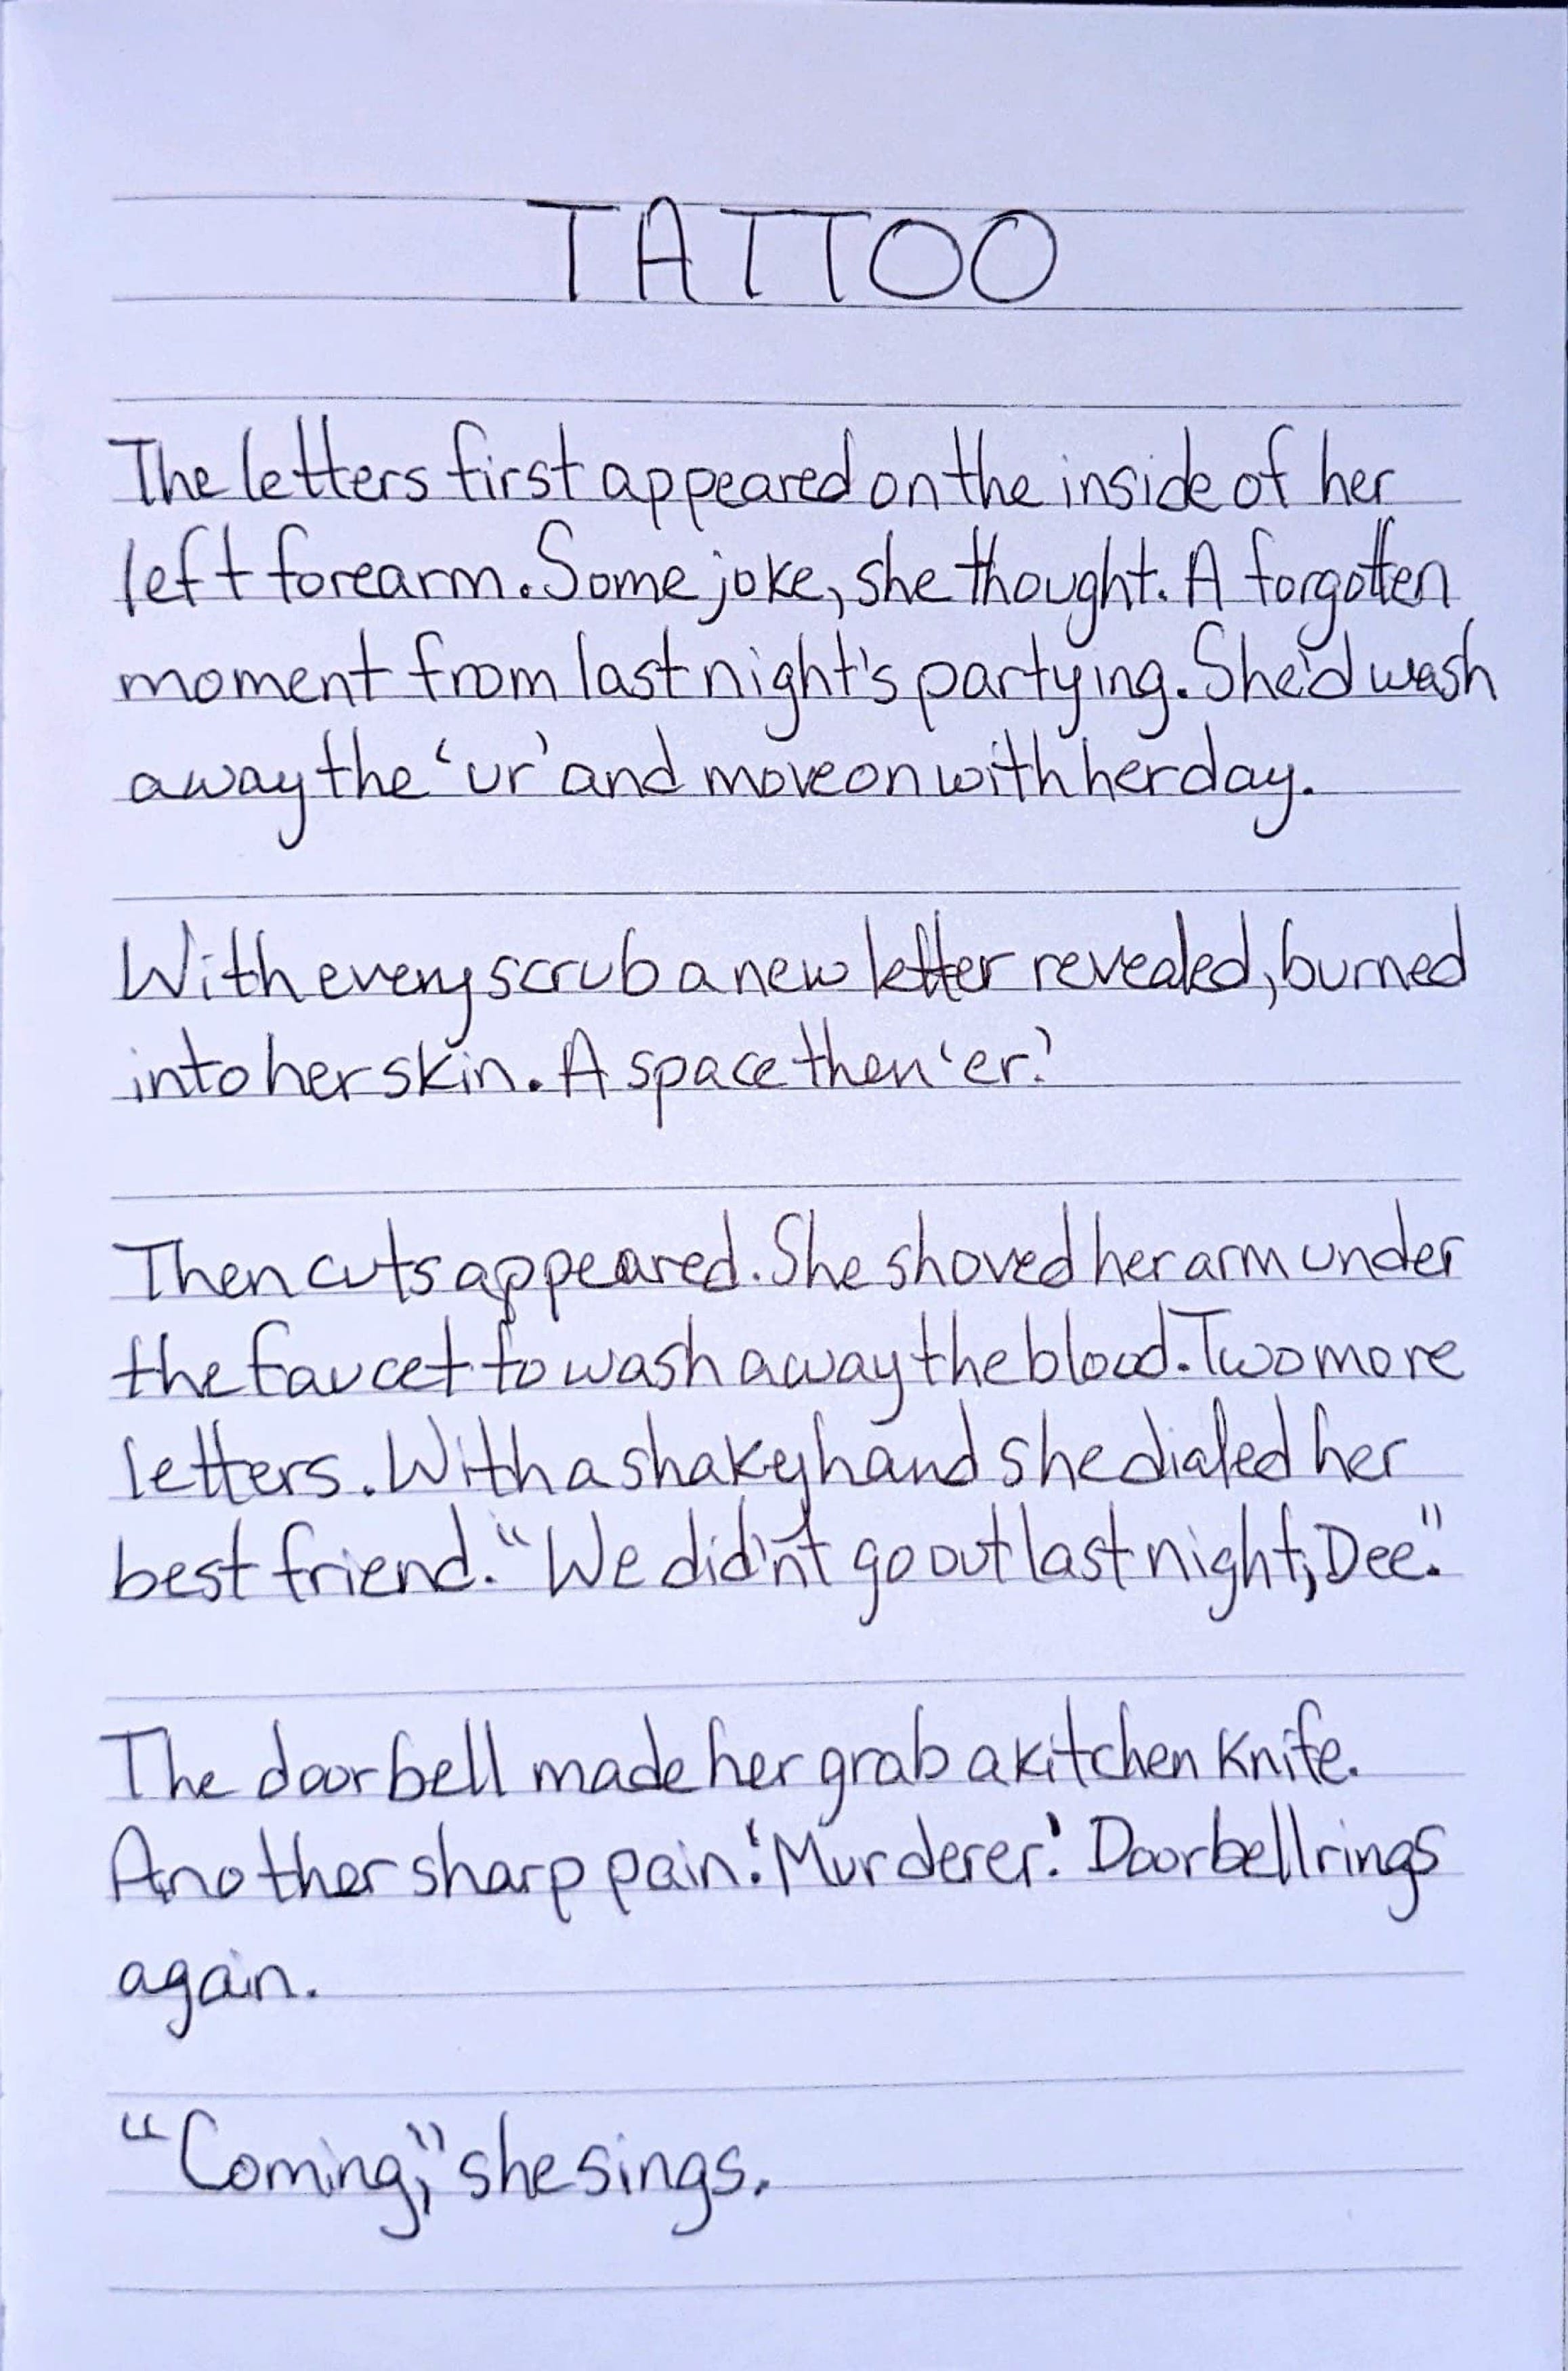 TATTOO
The letters first appeared on the inside of her
left forearm. Some joke, she thought. A forgotten
moment from last night's partying. She'd wash
away the 'ur' and move on with her day.
With every scrub a new letter revealed, burned
into her skin. A space then 'er.'
Then cuts appeared. She shoved her arm under
the faucet to wash away the blood. Two more
letters. With a shaky hand she dialed her
best friend. "We didn't go out last night, Dee."
The doorbell made her grab a kitchen knife.
Another sharp pain. 'Murderer.' Doorbell rings
again.
"Coming," she sings.